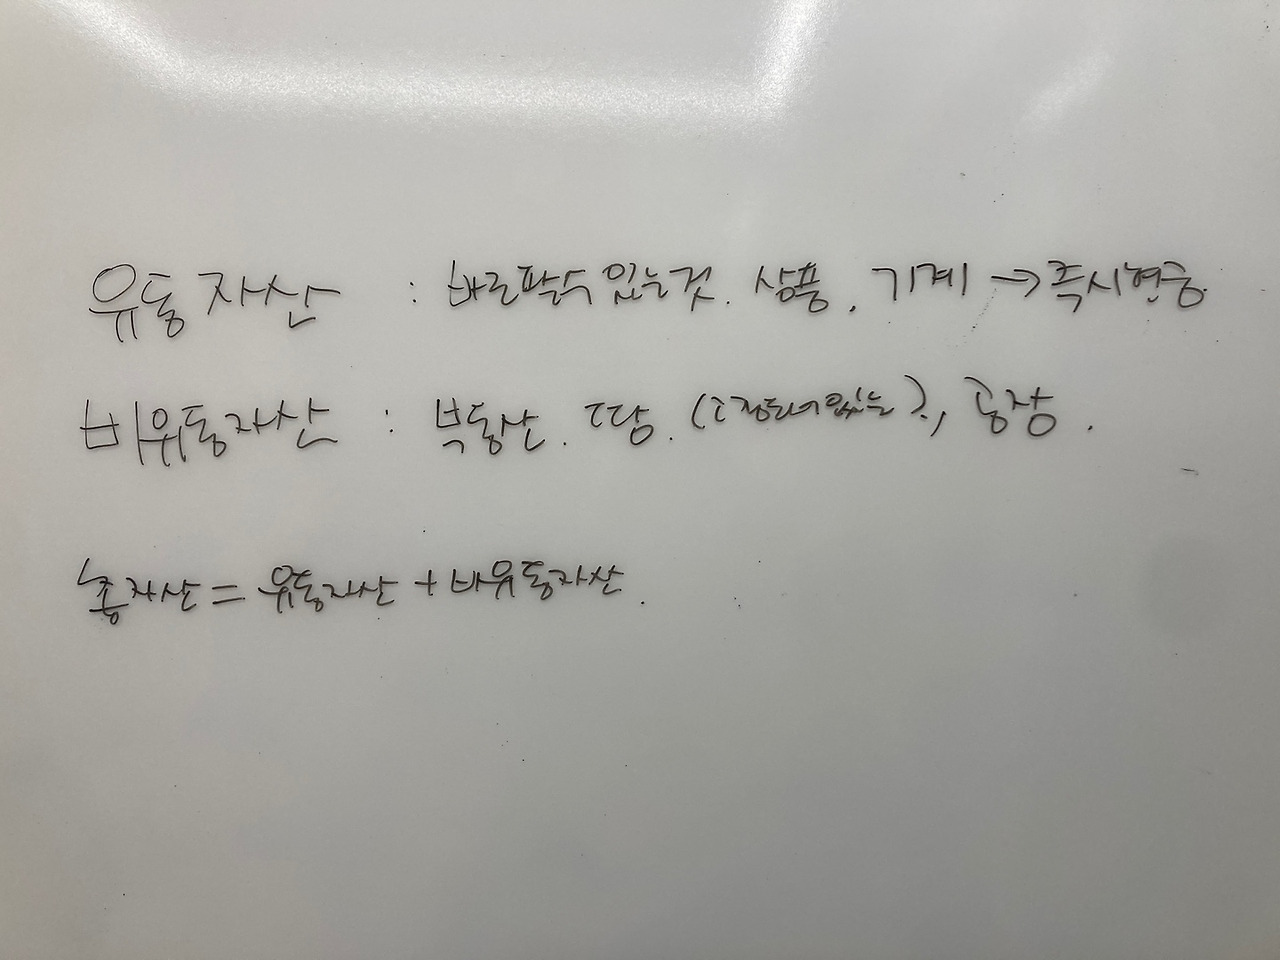 유동자산 : 바로팔수있는것. 상품, 기계 → 즉시현금
비유동자산 : 부동산. 땅. (고정되어있는), 공장.
총자산 = 유동자산 + 비유동자산.